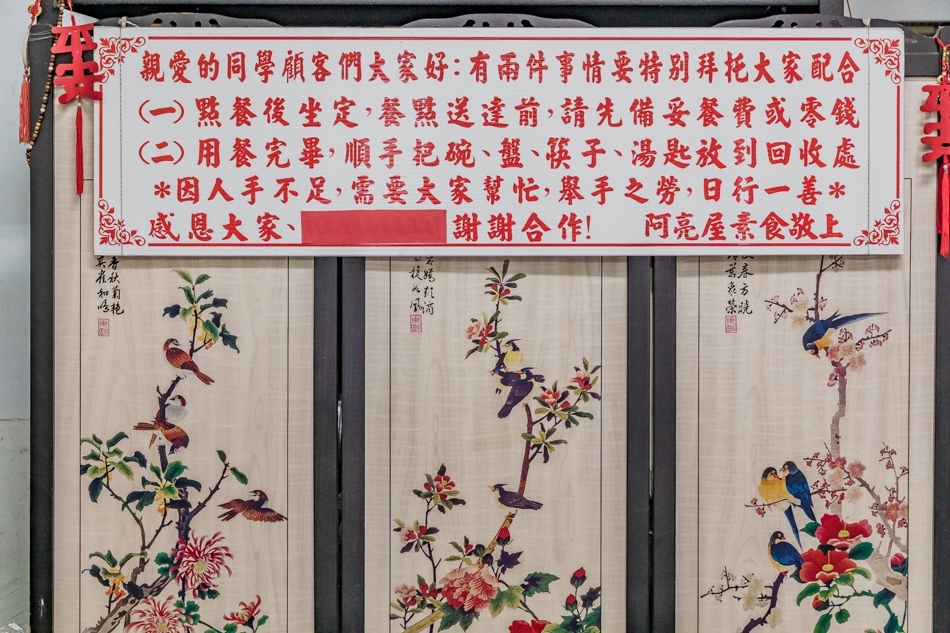 親愛的同學顧客們大家好:有兩件事情要特別拜托大家配合
(一)點餐後坐定,餐點送達前,請先備妥餐費或零錢
(二)用餐完畢,順手把碗、盤、筷子、湯匙放到回收處
*因人手不足,需要大家幫忙,舉手之勞,日行一善*
感恩大家、謝謝合作! 阿亮屋素食敬上
平安
春秋菊艷